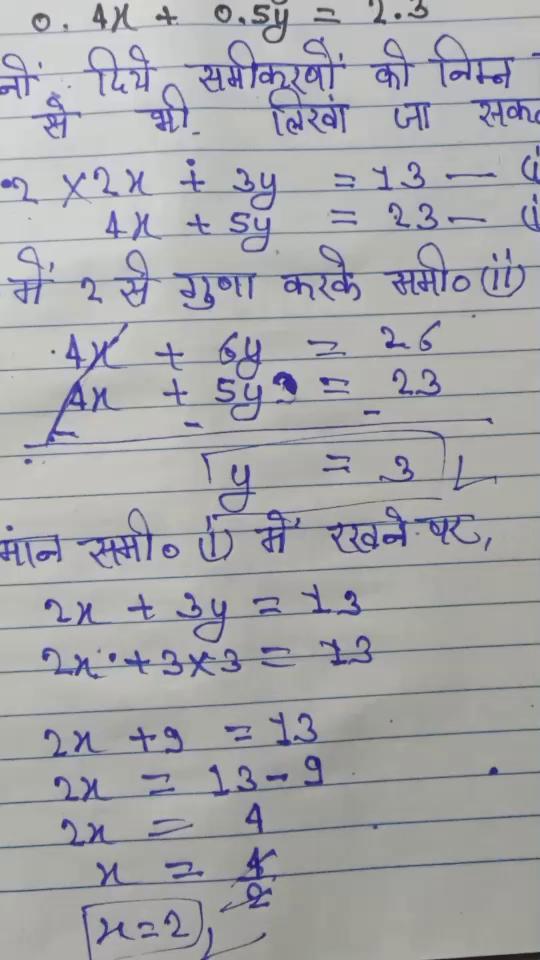 0.4x + 0.5y = 2.3
नों दिये समीकरणों को निम्न
से भी लिखा जा सक
2 × 2x + 3y = 13 —
4x + 5y = 23 —
में 2 से गुणा करके समी० (ii)
4x + 6y = 26
4x + 5y = 23
- - -
y = 3
मान समी० (i) में रखने पर,
2x + 3y = 13
2x + 3×3 = 13
2x + 9 = 13
2x = 13 - 9
2x = 4
x = 4/2
x = 2